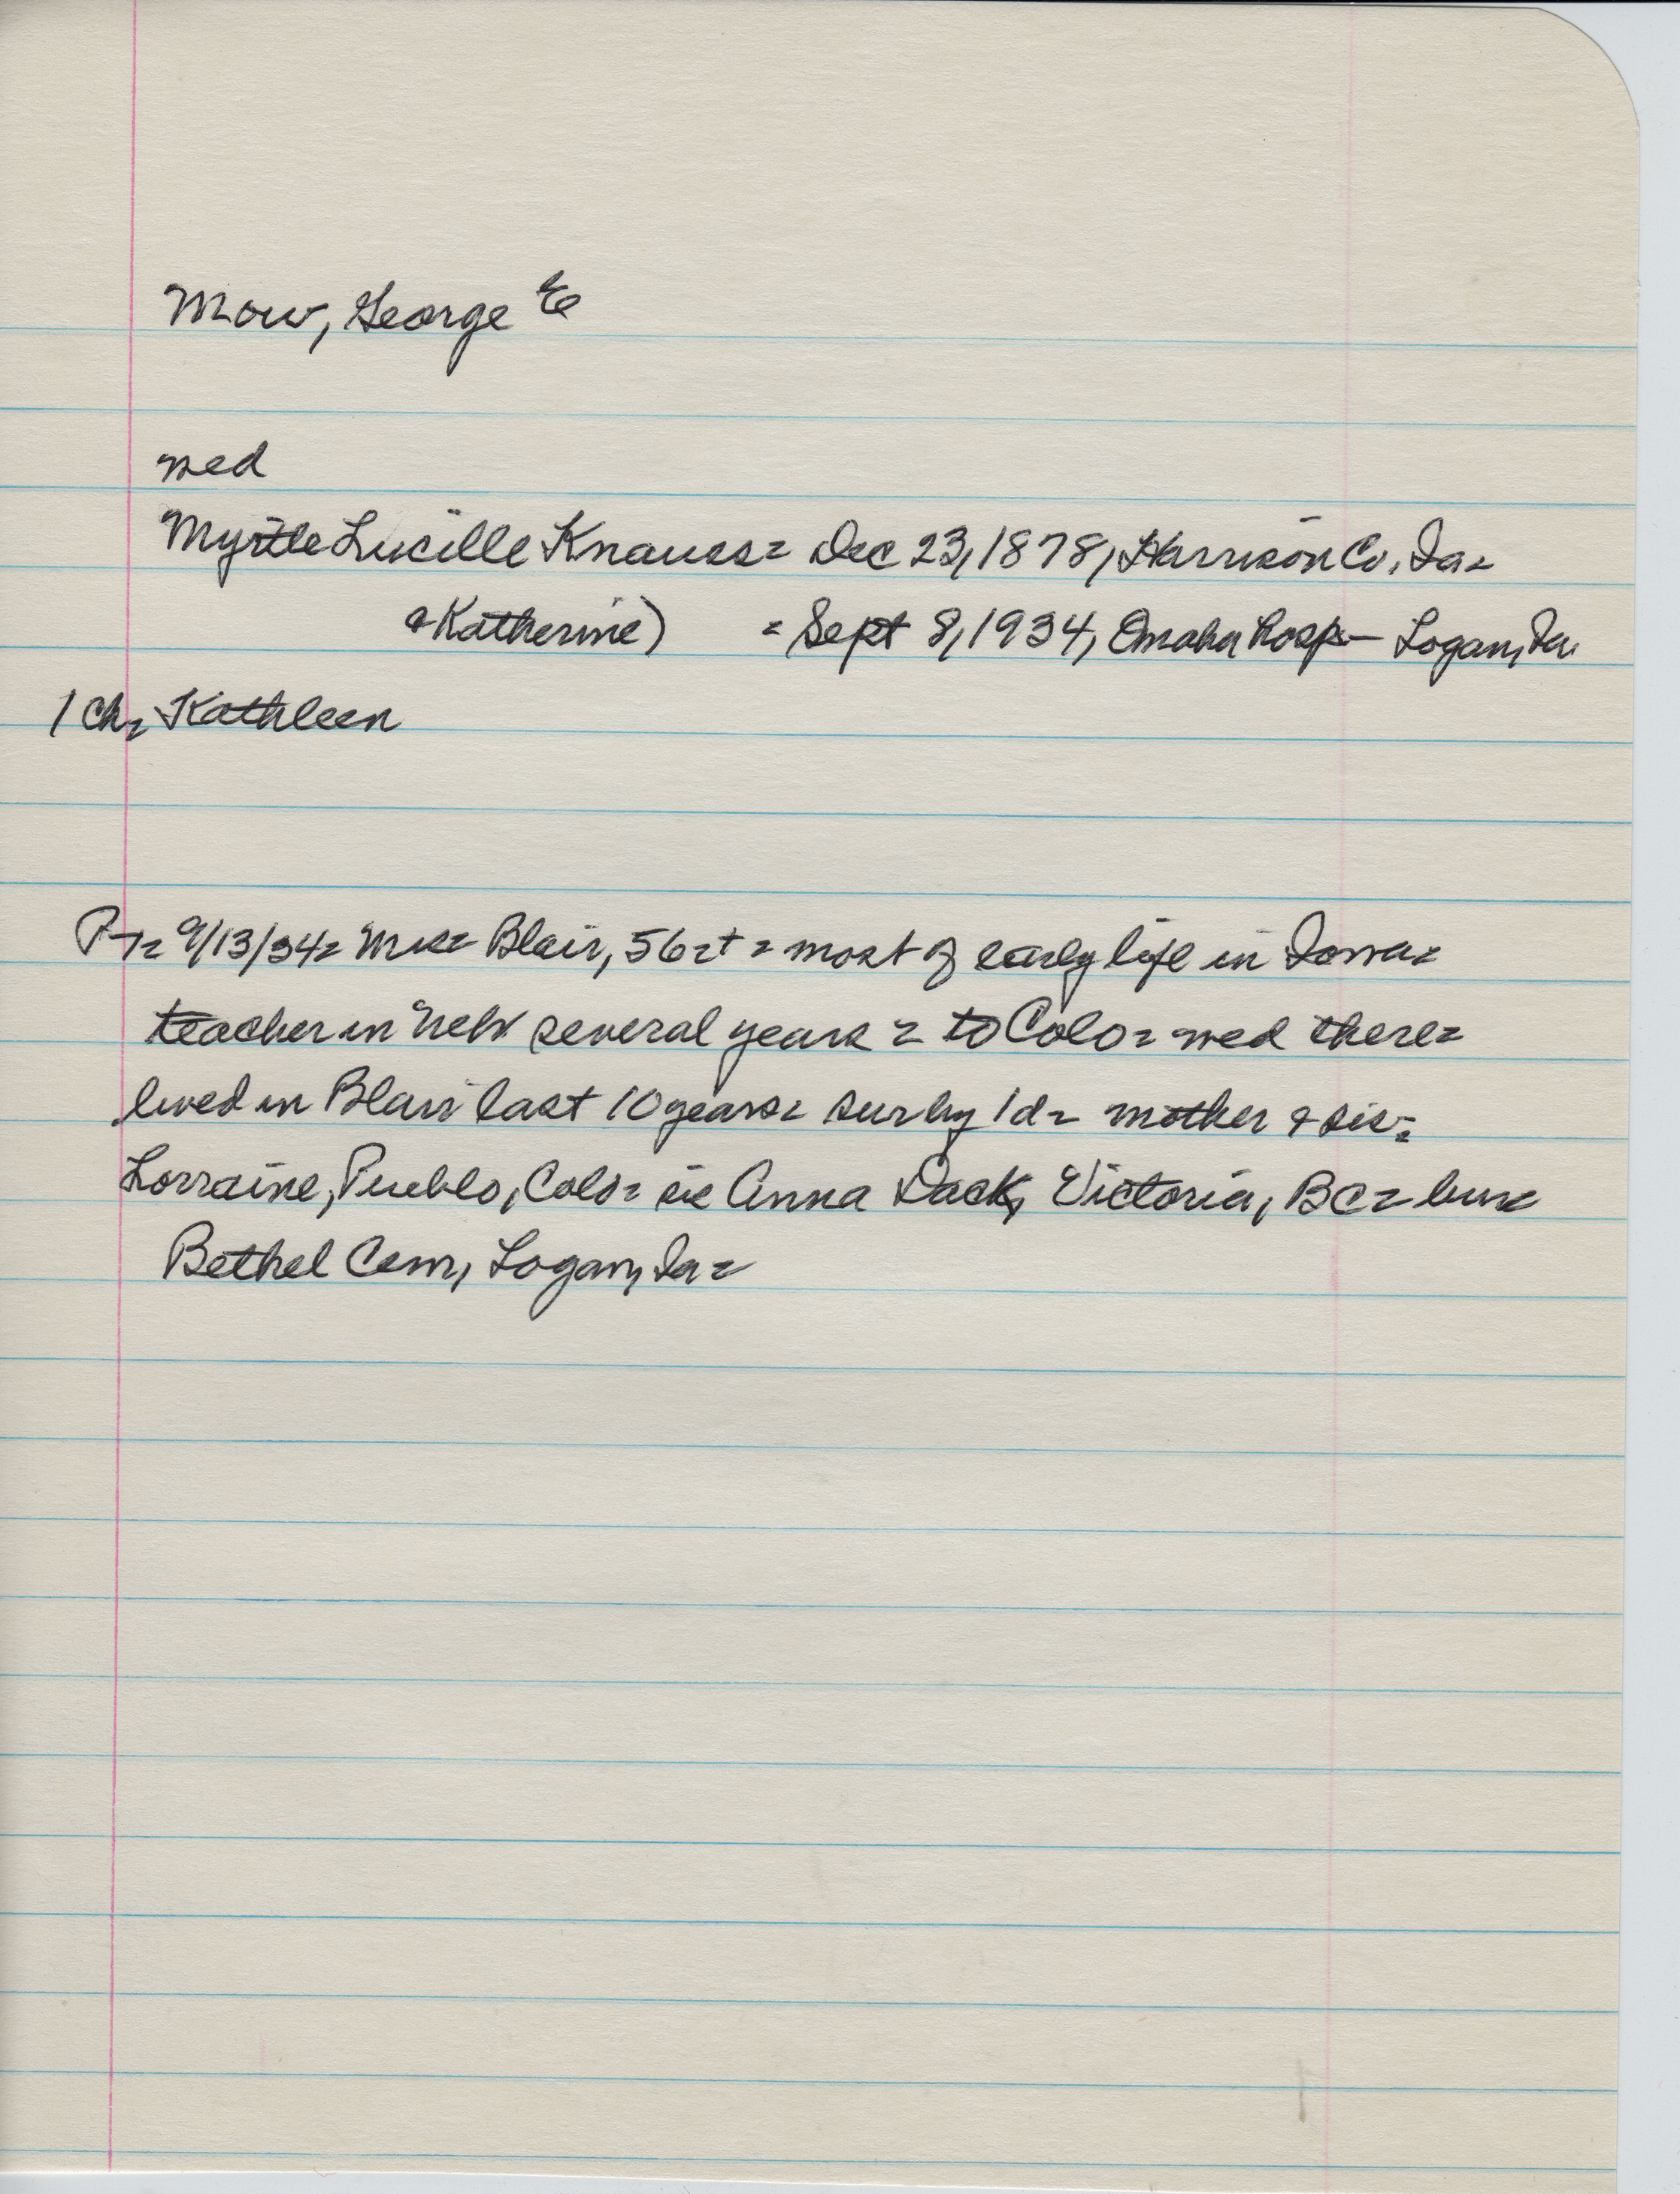 Mow, George E
wed
Myrtle Lucille Knauss= Dec 23, 1878, Harrison Co, Ia=
& Katherine) = Sept 8, 1934, Omaha Hosp - Logan, Ia
1 ch= Kathleen
PT= 9/13/34= Mrs= Blair, 56 = most of early life in Iowa=
teacher in Neb several years = to Colo= wed there=
lived in Blair last 10 years= sur by 1 d= mother & sis=
Lorraine, Pueblo, Colo= sis Anna Dack, Victoria, BC= bur=
Bethel Cem, Logan, Ia=